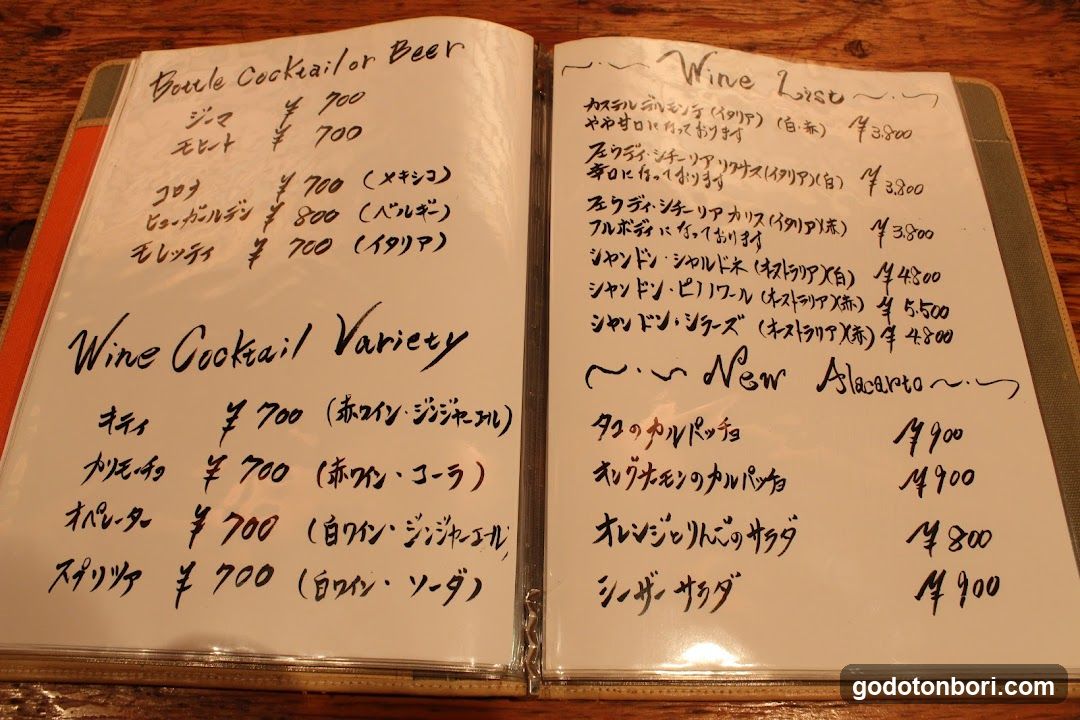 Bottle Cocktail or Beer
ジーマ ¥700
モヒート ¥700
コロナ ¥700 (メキシコ)
ヒューガルデン ¥800 (ベルギー)
モレッティ ¥700 (イタリア)
Wine Cocktail Variety
キティ ¥700 (赤ワイン・ジンジャーエール)
カリモーチョ ¥700 (赤ワイン・コーラ)
オペレーター ¥700 (白ワイン・ジンジャーエール)
スプリツァ ¥700 (白ワイン・ソーダ)
~・~ Wine List ~・~
カステルデルモンテ (イタリア) (白・赤) ¥3.800
やや甘口になっております
フェウディ・シチーリア リクサス (イタリア)(白) ¥3.800
辛口になっております
フェウディ・シチーリア カリス (イタリア)(赤) ¥3.800
フルボディになっております
シャンドン・シャルドネ (オーストラリア)(白) ¥4.800
シャンドン・ピノノワール (オーストラリア)(赤) ¥5.500
シャンドン・シラーズ (オーストラリア)(赤) ¥4.800
~・~ New Alacarto ~・~
タコのカルパッチョ ¥900
キングサーモンのカルパッチョ ¥900
オレンジとりんごのサラダ ¥800
シーザーサラダ ¥900
godotonbori.com